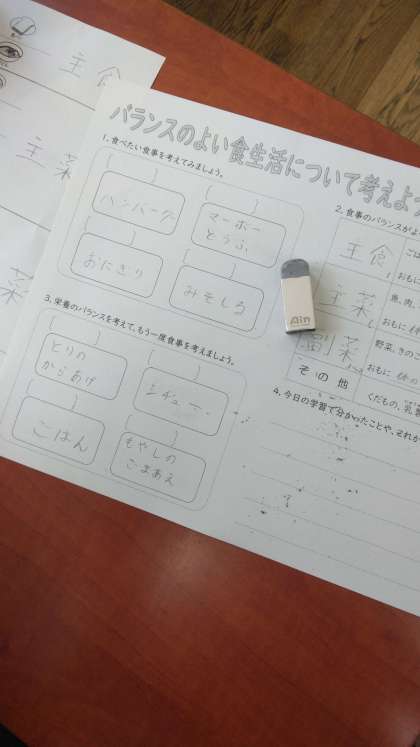 主食
主菜
菜
バランスのよい食生活について考えよ
1. 食べたい食事を考えてみましょう。
ハンバーグ
マーボー
どうふ
おにぎり
みそしる
3. 栄養のバランスを考えて、もう一度食事を考えましょう。
とりの
からあげ
シチュー
ごはん
もやしの
ごまあえ
2. 食事のバランスがよ
主食
ごは
おもに
主菜
魚、肉、
おもに
副菜
野菜、きのこ
おもに
その他
くだもの、乳
4. 今日の学習で分かったことや、これか
Ain